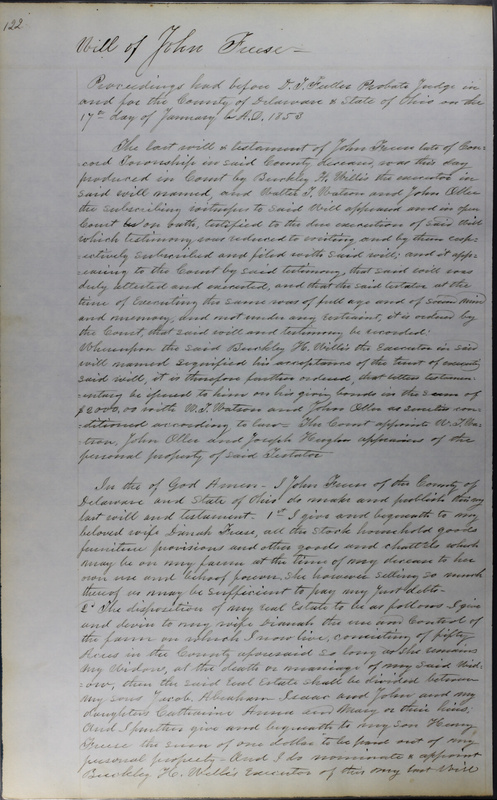 122
Will of John Freese
Proceedings had before D. T. Fuller Probate Judge in
and for the County of Delaware & State of Ohio on the
17th day of January A.D. 1853
The last will & testament of John Freese late of Con-
cord Township in said County deceased, was this day
produced in Court by Buckley H. Willis the executor in
said will named, and Walter T. Watson and John Oller
the subscribing witnesses to said Will appeared and in open
Court on oath, testified to the due execution of said Will
which testimony was reduced to writing and by them resp-
ectively subscribed and filed with said will; and it appe-
earing to the Court by said testimony, that said will was
duly attested and executed, and that the said testator at the
time of Executing the same was of full age and of sound mind
and memory, and not under any restraint; it is ordered by
the Court, that said will and testimony be recorded:
Whereupon the said Buckley H. Willis the Executor in said
will named signified his acceptance of the trust of executing
said will, it is therefore further ordered, that letters testamen-
entary be issued to him on his giving bonds in the sum of
$2000.00 with W. T. Watson and John Oller as sureties con-
ditioned according to law - The Court appoints W. T. Wa-
tson, John Oller and Joseph appraisers of the
personal property of said Testator
In the of God Amen - I John Freese of the County of
Delaware and State of Ohio do make and publish this my
last will and testament - 1st I give and bequeath to my
beloved wife Dianah Freese, all the stock household goods
furniture provisions and other goods and chattels which
may be on my farm at the time of my decease to her
own use and behoof forever. She however selling so much
thereof as may be sufficient to pay my just debts -
2d The disposition of my real Estate to be as follows I give
and devise to my wife Dianah the use and Control of
the farm on which I now live, consisting of fifty
Acres in the County aforesaid so long as she remains
My Widow, at the death or marriage of my said Wid-
ow, then the said real Estate shall be divided between
my sons Jacob. Abraham Isaac and John and my
daughters Catharine Anna and Mary or their heirs.
And I further give and bequeath to my son Henry
Freese the sum of one dollar to be paid out of my
personal property - And I do nominate & appoint
Buckley H. Willis Executor of this my last Will